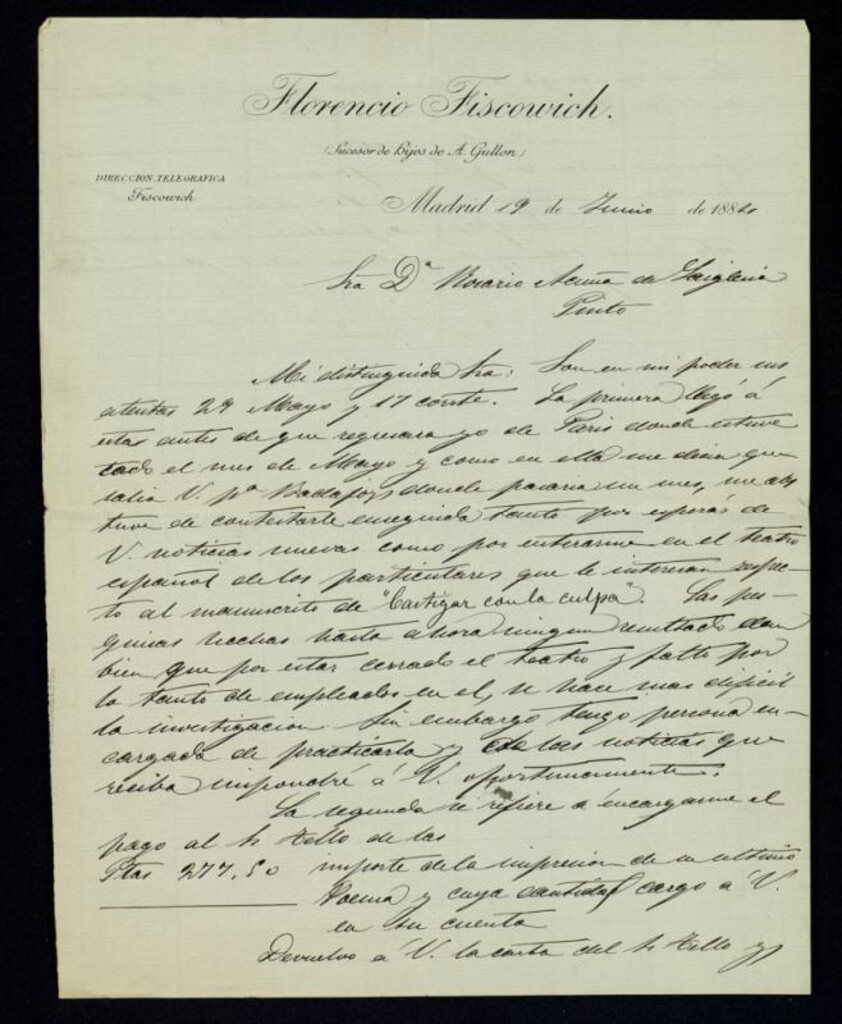 Florencio Fiscowich.
(Sucesor de Hijos de A. Gullon)
DIRECCION TELEGRAFICA
Fiscowich
Madrid 19 de Junio de 1884
Sra Dª Rosario Acuña de Laiglesia
Pinto
Mi distinguida Sra: Son en mi poder sus
atentas 29 Mayo y 17 corrte. La primera llegó á
esta antes de que regresara yo de Paris donde estuve
todo el mes de Mayo y como en ella me decia que
salia V. pª Badajoz donde pasaria un mes, me abs
tuve de contestarle enseguida tanto por esperar de
V. noticias nuevas como por enterarme en el teatro
español de los particulares que le interesan respec-
to al manuscrito de "Castigar con la culpa". Las pes-
quisas hechas hasta ahora ningun resultado dan
bien que por estar cerrado el teatro y falto por
lo tanto de empleados en el, se hace mas dificil
la investigacion. Sin embargo tengo persona en-
cargada de practicarla y de las noticias que
reciba impondré á V. oportunamente.
La segunda se refiere á encargarme el
pago al Sr Tello de las
Ptas 277,50 importe de la impresion de su ultimo
Poema y cuya cantidad cargo á V.
en su cuenta
Devuelvo á V. la carta del Sr Tello y